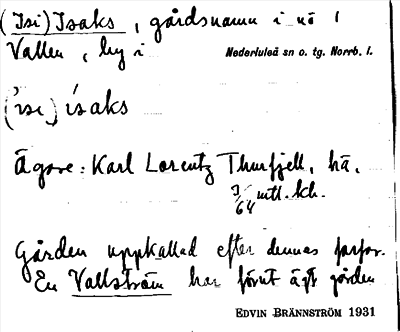 (Isi) Isaks, gårdsnamn i nö 1
Vallen, by i Nederluleå sn o. tg. Norrb. l.
('isi) ísaks
Ägare: Karl Lorentz Thurfjell, hä.
9/64 mtl. kh.
Gården uppkallad efter dennes farfar.
En Vallström har förut ägt gården
EDVIN BRÄNNSTRÖM 1931